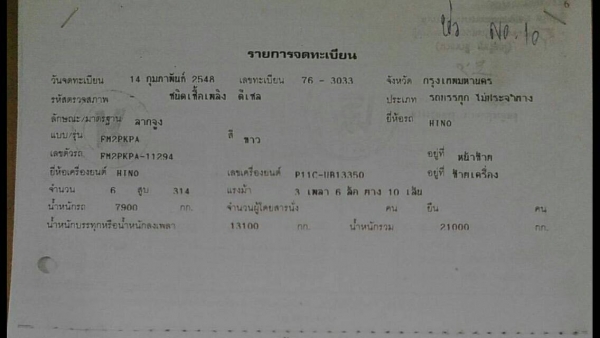 No.10
รายการจดทะเบียน
วันจดทะเบียน 14 กุมภาพันธ์ 2548 เลขทะเบียน 76 - 3033 จังหวัด กรุงเทพมหานคร
รหัสตรวจสภาพ - ชนิดเชื้อเพลิง ดีเซล ประเภท รถบรรทุก ไม่ประจำทาง
ลักษณะ/มาตรฐาน ลากจูง ยี่ห้อรถ HINO
แบบ/รุ่น FM2PKPA สี ขาว
เลขตัวรถ FM2PKPA-11294 อยู่ที่ หน้าซ้าย
ยี่ห้อเครื่องยนต์ HINO เลขเครื่องยนต์ P11C-UB13350 อยู่ที่ ซ้ายเครื่อง
จำนวน 6 สูบ 314 แรงม้า 3 เพลา 6 ล้อ ยาง 10 เส้น
น้ำหนักรถ 7900 กก. จำนวนผู้โดยสารนั่ง คน ยืน คน
น้ำหนักบรรทุกหรือน้ำหนักลงเพลา 13100 กก. น้ำหนักรวม 21000 กก.